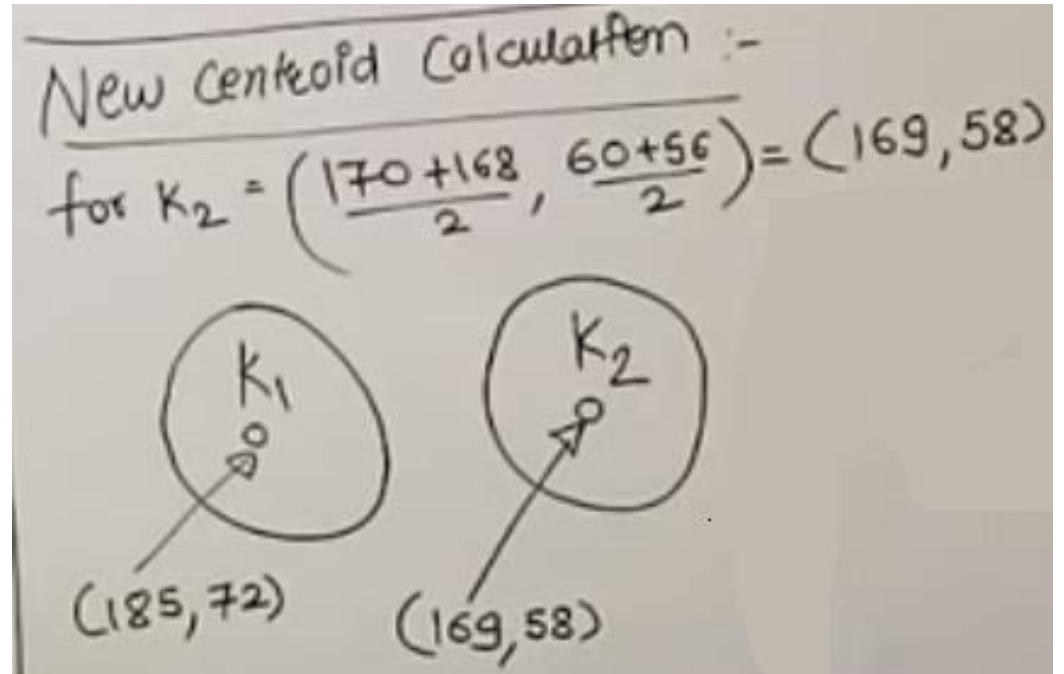 New Centroid Calculation :-
for K₂ = (170+168/2, 60+56/2) = (169,58)
K₁
K₂
(185,72)
(169,58)